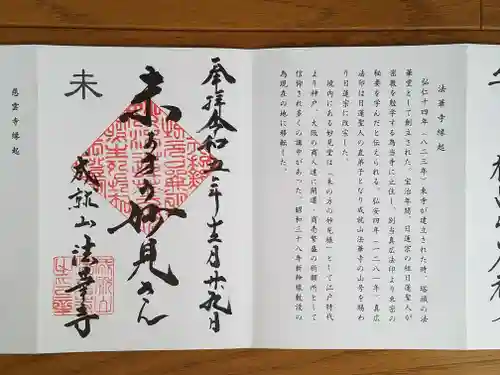 法華寺縁起
弘仁十四年（八二三年）東寺が建立された時、塔頭の法
華堂として創立された。宝治年間、日蓮宗の祖日蓮聖人が
密教を勉学する為当寺に止住し、別当真広法印より真言の
秘要を学んだと伝えられる。弘安四年（一二八一年）真広
法印は日蓮聖人の直弟子となり成就山法華寺の山号を賜わ
り日蓮宗に改宗した。
境内にある妙見堂は「未の方の妙見様」として江戸時代
より神戸、大阪の商人達に開運・商売繁盛の祈願所として
信仰され多くの講中があった。昭和三十八年新幹線敷設の
為現在の地に移転した。
奉拝 令和五年十二月廿九日
未
未の方の妙見さん
成就山 法華寺
慈雲寺縁起